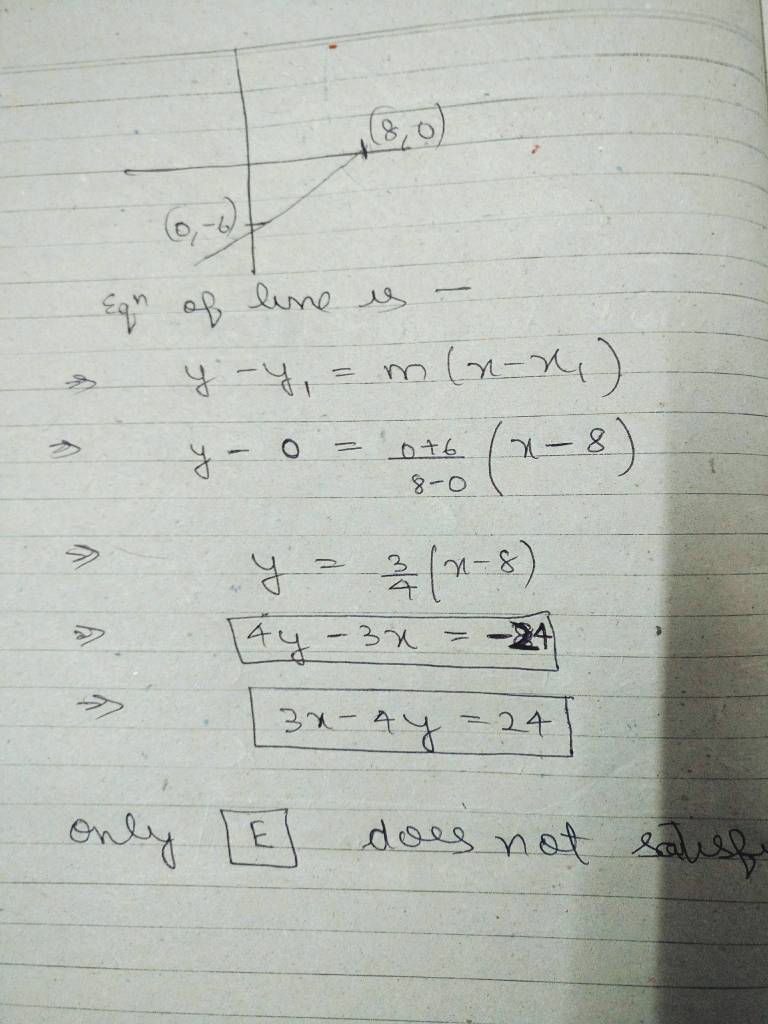 (8,0)
(0,-6)
Eqⁿ of line is —
⇒ y - y₁ = m (x-x₁)
⇒ y - 0 = 0+6/8-0 (x-8)
⇒ y = 3/4 (x-8)
⇒ 4y - 3x = -24
⇒ 3x - 4y = 24
only E does not satisf